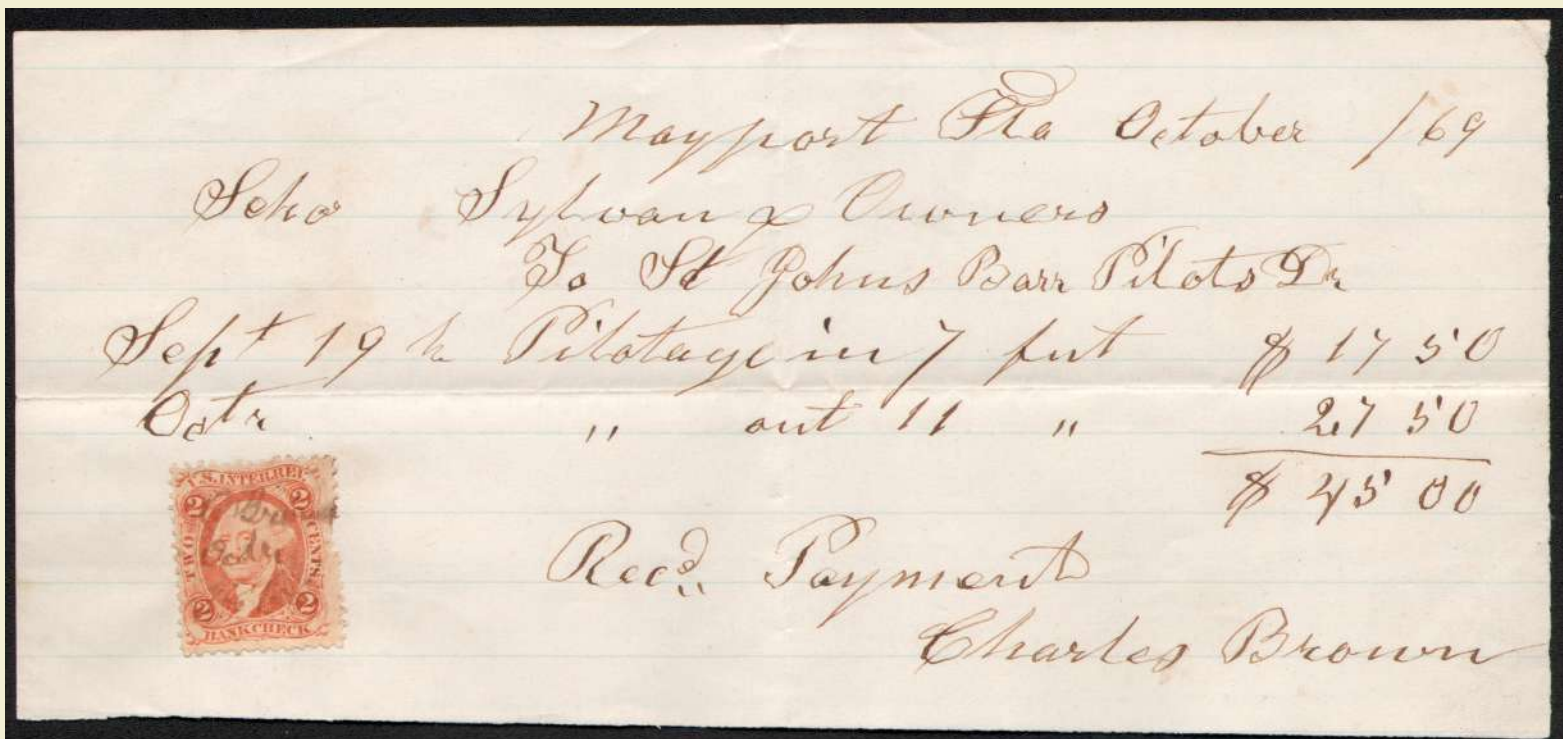 Mayport Fla October /69
Schr Sylvan & Owners
To St Johns Barr Pilots Dr
Sept 19 th Pilotage in 7 feet $ 17 50
Octr " out 11 " 27 50
$ 45 00
Recd. Payment
Charles Brown
U.S. INTER. REV.
2 2
TWO CENTS
Octr
2 2
BANK CHECK